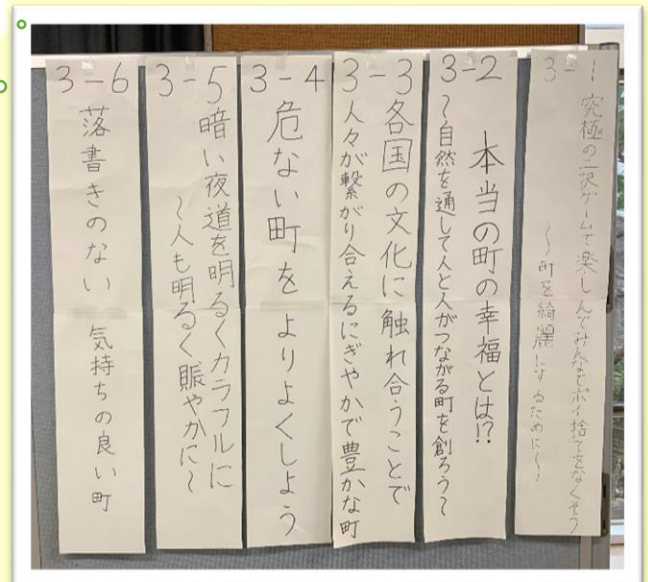 3-1
究極の二択ゲームで楽しんでみんなでポイ捨てをなくそう
〜町を綺麗にするために〜
3-2
本当の町の幸福とは!?
〜自然を通して人と人がつながる町を創ろう〜
3-3
各国の文化に触れ合うことで
人々が繋がり合えるにぎやかで豊かな町
3-4
危ない町をよりよくしよう
3-5
暗い夜道を明るくカラフルに
〜人も明るく賑やかに〜
3-6
落書きのない 気持ちの良い町